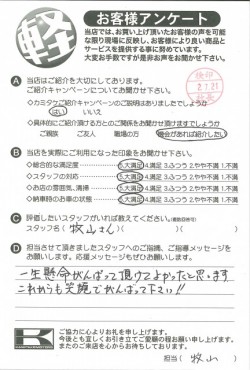 軽
お客様アンケート
当店では、お買い上げ頂いたお客様の声を可能
な限り現場に反映し、お客様により良い商品と
サービスを提供する事に努めています。
大変お手数ですが是非お声をお聞かせ下さい。
A 当店はご紹介を大切にしております。
ご紹介キャンペーンについてお聞かせ下さい。
・カミタケご紹介キャンペーンのご説明はありましたでしょうか
はい いいえ
・具体的にご紹介頂ける方とのご関係をお聞かせ頂けますでしょうか
ご親族 ご友人 職場の方 機会があれば紹介したい
B 当店を実際にご利用になった印象をお聞かせ下さい。
◇総合的な満足度 5.大満足 4.満足 3.ふつう 2.やや不満 1.不満
◇スタッフの対応 5.大満足 4.満足 3.ふつう 2.やや不満 1.不満
◇お店の雰囲気、清掃 5.大満足 4.満足 3.ふつう 2.やや不満 1.不満
◇納車時のお車の状態 5.大満足 4.満足 3.ふつう 2.やや不満 1.不満
C 評価したいスタッフがいれば教えてください。(複数回答可)
スタッフ名( 牧山さん )( )( )
D 担当させて頂きましたスタッフへのご指摘、ご指導メッセージを
お願いします。応援メッセージもぜひお願いします。
一生懸命がんばって頂けてよかったと思います
これからも笑顔でがんばって下さい!!
K
ご協力に心よりお礼を申し上げます。
今後とも宜しくお引き立てご愛顧の程お願い申し上げます。
またのご来店を心からお待ちしております。
担当( 牧山 )